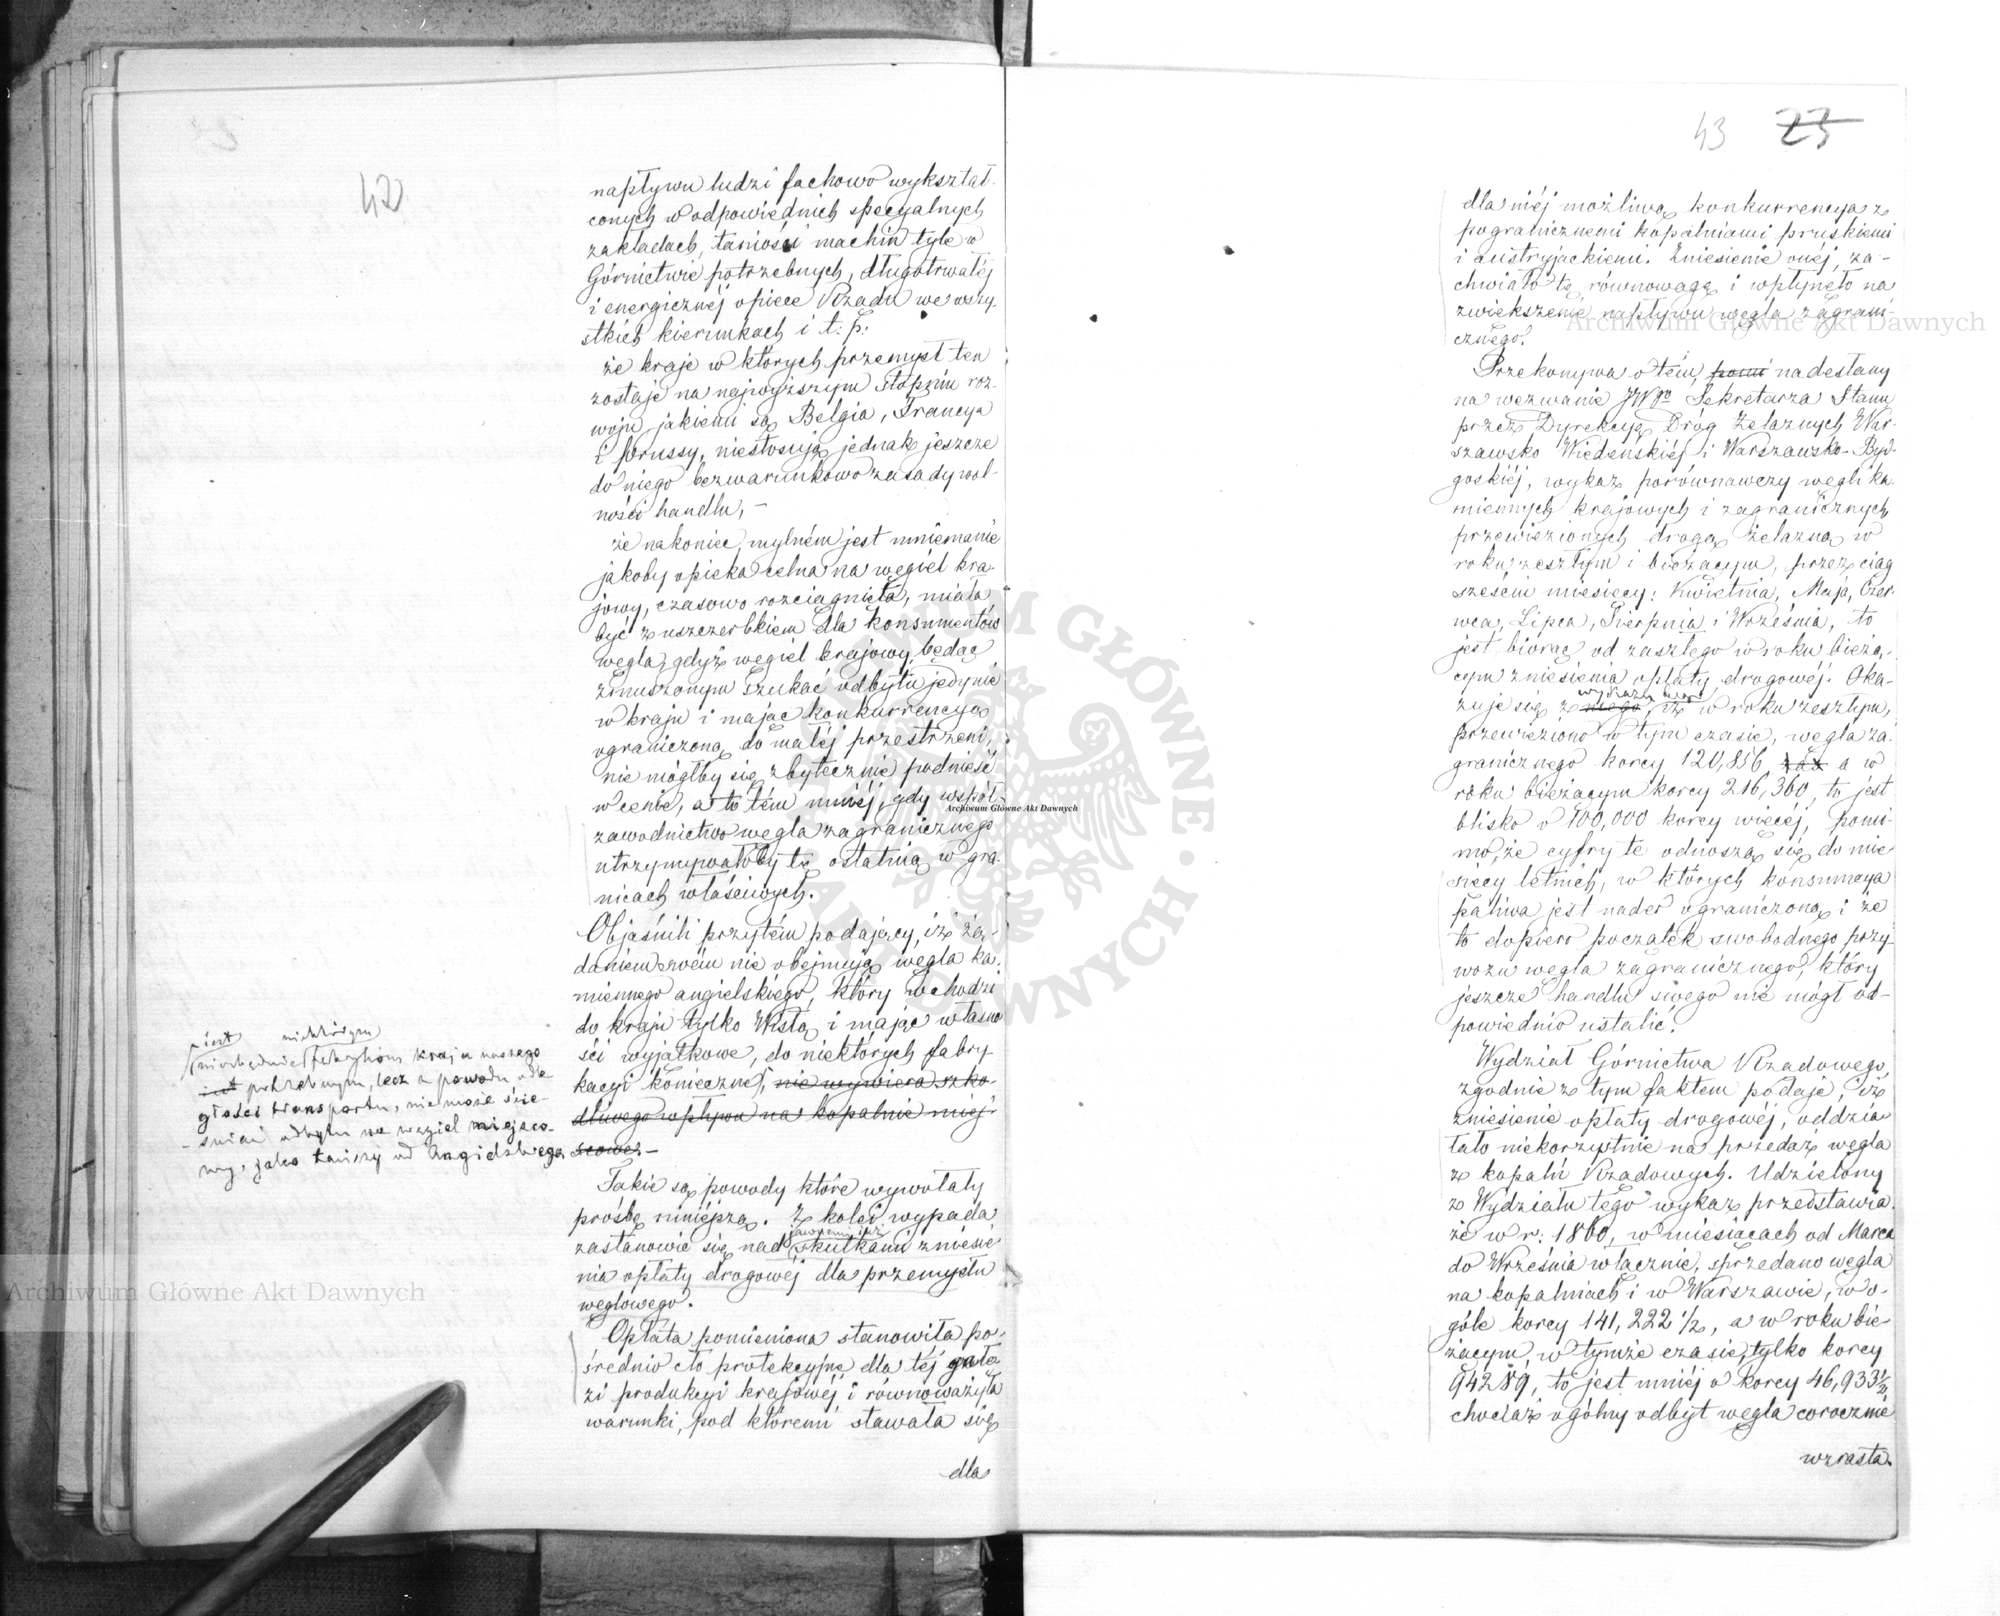 42
napływu ludzi fachowo wykształ-
conych w odpowiednich specyalnych
zakładach, taniości machin tyle w
Górnictwie potrzebnych, długotrwałéj
i energicznéj opiece Rządu we wszy
stkich kierunkach i t: p:
że kraje w których przemysł ten
zostaje na najwyższym stopniu roz-
woju jakiemi są Belgia, Francya
i Prussy, niestosują jednak jeszcze
do niego bezwarunkowo zasady wol-
ności handlu, –
że nakoniec, mylném jest mniemanie
jakoby opieka celna na węgiel kra-
jowy, czasowo rozciągnięta, miała
być z uszczerbkiem dla konsumentów
węgla, gdyż węgiel krajowy, będąc
zmuszonym szukać odbytu jedynie
w kraju i mając konkurrencyą
ograniczoną do małéj przestrzeni,
nie mógłby się zbytecznie podnieść
w cenie, a to tém mniéj, gdy współ-
zawodnictwo węgla zagranicznego
utrzymywałoby tę ostatnią w gra-
nicach właściwych.
Objaśnili przytém podający, iż żą-
daniem swém nie obejmują węgla ka-
miennego angielskiego, który wchodzi
do kraju tylko Wisłą i mając własno
ści wyjątkowe, do niektórych fabry-
kacyi konieczne, nie wywiera szko-
dliwego wpływu na kopalnie miej-
scowe. –
jest niektórym
niezbędnie fabrykom kraju naszego
jest potrzebnym, lecz z powodu odle
głości transportu, nie może ście-
śniać odbytu na węgiel miejsco-
wy, jako tańszy od Angielskiego
Takie są powody które wywołały
prośbę niniejszą. Z kolei wypada
zastanowić się nad skutkami zniesie
nia opłaty drogowéj dla przemysłu
węglowego.
Opłata pomieniona stanowiła po-
średnio cło protekcyjne dla téj gałę
zi produkcyi krajowéj i równoważyła
warunki, pod któremi stawała się
dla
43 23
dla niéj możliwą konkurrencya z
pogranicznemi kopalniami pruskiemi
i austryjackiemi. Zniesienie onéj, za-
chwiało tę równowagę i wpłynęło na
zwiększenie napływu węgla zagrani-
cznego.
Przekonywa o tém, nadesłany
na wezwanie JWgo Sekretarza Stanu
przez Dyrekcyą Dróg Żelaznych War-
szawsko Wiedeńskiéj i Warszawsko-Byd-
goskiéj, wykaz porównawczy węgli ka-
miennych krajowych i zagranicznych,
przewiezionych drogą żelazną w
roku zeszłym i bieżącym, przez ciąg
sześciu miesięcy: Kwietnia, Maja, Czer-
wca, Lipca, Sierpnia i Września, to
jest, biorąc od zaszłego w roku bieżą-
cym zniesienia opłaty drogowéj. Oka-
wykazu tego
zuje się z niego, iż w roku zeszłym,
przewieziono w tym czasie, węgla za-
granicznego korcy 120,856 zaś a w
roku bieżącym korcy 216,360, to jest
blisko o 100,000 korcy więcéj, pomi-
mo, że cyfry te odnoszą się do mie
sięcy letnich, w których konsumcya
paliwa jest nader ograniczoną i że
to dopiero początek swobodnego przy-
wozu węgla zagranicznego, który
jeszcze handlu swego nie mógł od-
powiednio ustalić.
Wydział Górnictwa Rządowego,
zgodnie z tym faktem podaje, iż
zniesienie opłaty drogowéj, oddzia-
łało niekorzystnie na przedaż węgla
z kopalń Rządowych. Udzielony
z Wydziału tego wykaz przedstawia
że w r: 1860, w miesiącach od Marca
do Września włącznie, sprzedano węgla
na kopalniach i w Warszawie, w o-
góle korcy 141,222 1/2, a w roku bie-
żącym, w tymże czasie, tylko korcy
94289, to jest mniéj o korcy 46,933 1/2,
chociaż ogólny odbyt węgla corocznie
wzrasta.
Archiwum Główne Akt Dawnych
Archiwum Główne Akt Dawnych
Archiwum Główne Akt Dawnych
ARCHIWUM GŁÓWNE AKT DAWNYCH